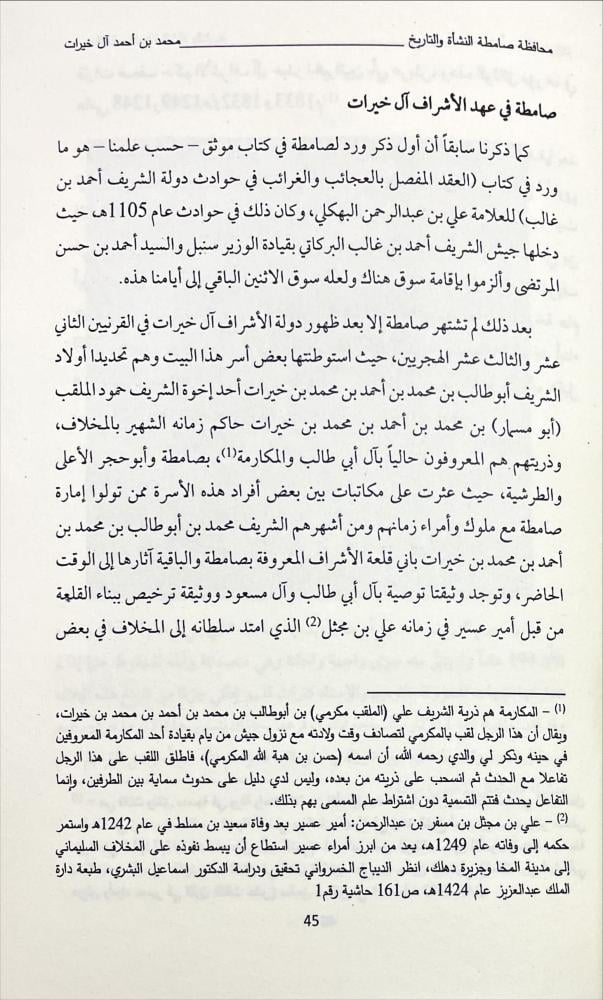 محافظة صامطة النشأة والتاريخ ــــــــــــــــــــ محمد بن أحمد آل خيرات
صامطة في عهد الأشراف آل خيرات
كما ذكرنا سابقاً أن أول ذكر ورد لصامطة في كتاب موثق – حسب علمنا – هو ما
ورد في كتاب (العقد المفصل بالعجائب والغرائب في حوادث دولة الشريف أحمد بن
غالب) للعلامة علي بن عبدالرحمن البهكلي، وكان ذلك في حوادث عام 1105هـ، حيث
دخلها جيش الشريف أحمد بن غالب البركاتي بقيادة الوزير سنبل والسيد أحمد بن حسن
المرتضى وألزموا بإقامة سوق هناك ولعله سوق الاثنين الباقي إلى أيامنا هذه.
بعد ذلك لم تشتهر صامطة إلا بعد ظهور دولة الأشراف آل خيرات في القرنيين الثاني
عشر والثالث عشر الهجريين، حيث استوطنتها بعض أسر هذا البيت وهم تحديدا أولاد
الشريف أبوطالب بن محمد بن أحمد بن محمد بن خيرات أحد إخوة الشريف حمود الملقب
(أبو مسمار) بن محمد بن أحمد بن محمد بن خيرات حاكم زمانه الشهير بالمخلاف،
وذريتهم هم المعروفون حالياً بآل أبي طالب والمكارمة(1)، بصامطة وأبوحجر الأعلى
والطرشية، حيث عثرت على مكاتبات بين بعض أفراد هذه الأسرة ممن تولوا إمارة
صامطة مع ملوك وأمراء زمانهم ومن أشهرهم الشريف محمد بن أبوطالب بن محمد بن
أحمد بن محمد بن خيرات باني قلعة الأشراف المعروفة بصامطة والباقية آثارها إلى الوقت
الحاضر، وتوجد وثيقتا توصية بآل أبي طالب وآل مسعود ووثيقة ترخيص ببناء القلعة
من قبل أمير عسير في زمانه علي بن مجثل(2) الذي امتد سلطانه إلى المخلاف في بعض
(1) – المكارمة هم ذرية الشريف علي (الملقب مكرمي) بن أبوطالب بن محمد بن أحمد بن محمد بن خيرات،
ويقال أن هذا الرجل لقب بالمكرمي لتصادف وقت ولادته مع نزول جيش من يام بقيادة أحد المكارمة المعروفين
في حينه وذكر لي والدي رحمه الله، أن اسمه (حسن بن هبة الله المكرمي)، فاطلق اللقب على هذا الرجل
تفاعلا مع الحدث ثم انسحب على ذريته من بعده، وليس لدي دليل على حدوث سماية بين الطرفين، وإنما
التفاعل يحدث فتتم التسمية دون اشتراط علم المسمى بهم بذلك.
(2) – علي بن مجثل بن مسفر بن عبدالرحمن: أمير عسير بعد وفاة سعيد بن مسلط في عام 1242هـ واستمر
حكمه إلى وفاته عام 1249هـ، يعد من ابرز أمراء عسير استطاع أن يبسط نفوذه على المخلاف السليماني
إلى مدينة المخا وجزيرة دهلك، انظر الديباج الخسرواني تحقيق ودراسة الدكتور اسماعيل البشري، طبعة دارة
الملك عبدالعزيز عام 1424هـ، ص161 حاشية رقم1
45